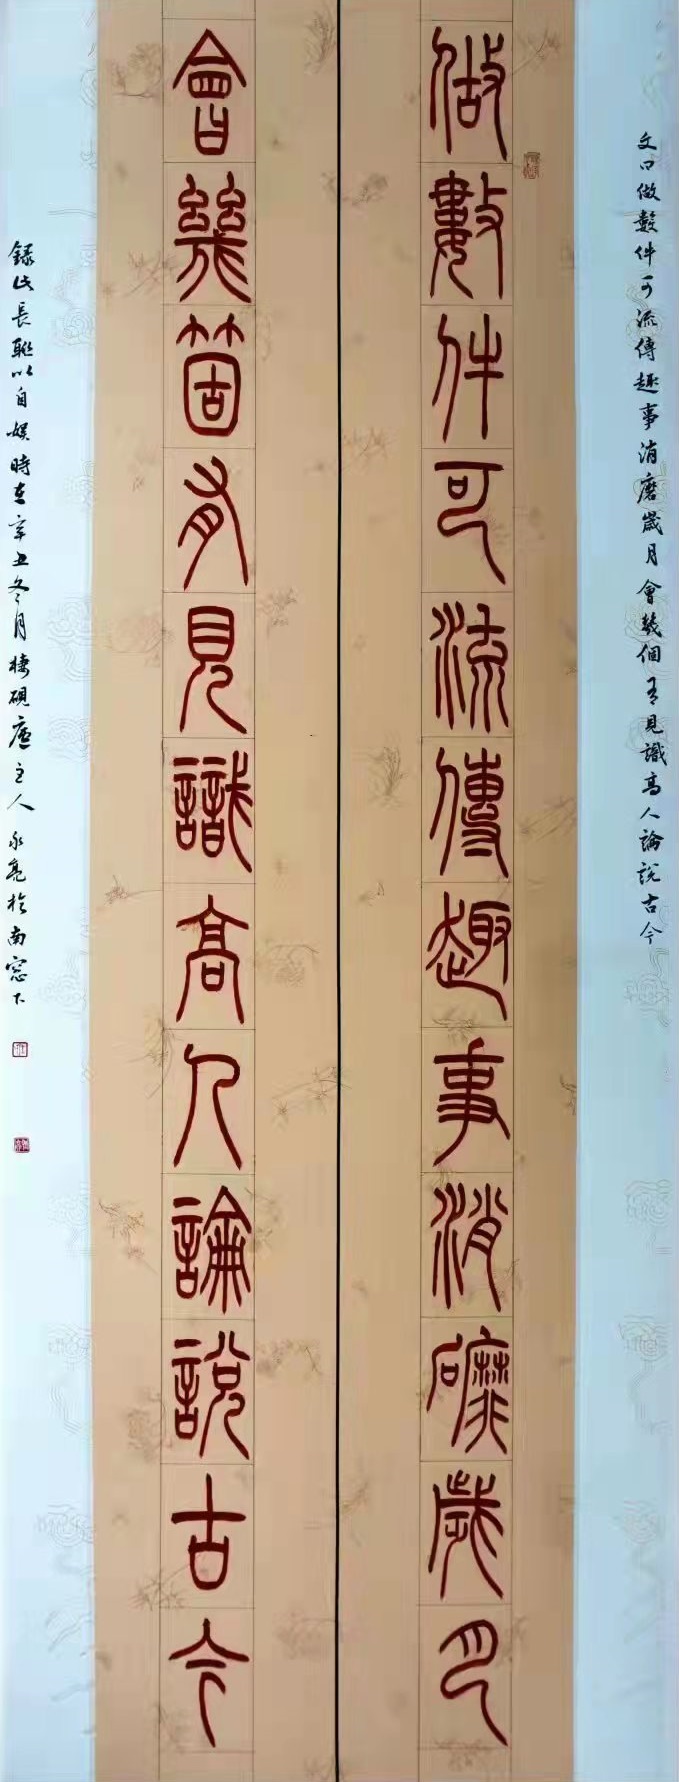 文曰做數件可流傳趣事消磨歲月會幾個有見識高人論說古今
做數件可流傳趣事消磨歲月
會幾箇有見識高人論說古今
錄此長聯以自娛時在辛丑冬月棲硯廬主人永亮於南窓下